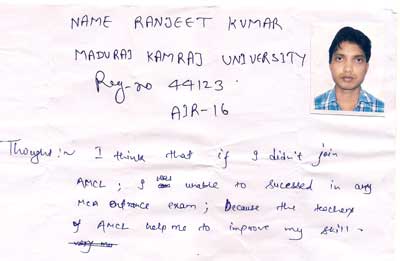 NAME RANJEET KUMAR
MADURAI KAMRAJ UNIVERSITY
Reg-no 44123
AIR-16
Thought:~ I think that if I didn't join
AMCL; I was unable to sucessed in any
MCA Entrance exam; Because the teachers
of AMCL help me to improve my skill.